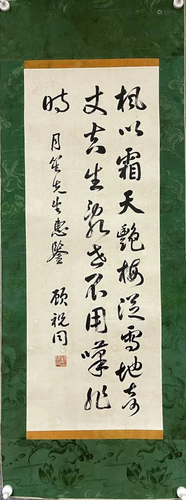 枫以霜天艷梅從雪地奇
丈夫生亂世不用嘆非
時
月笙先生惠鑒
顧祝同